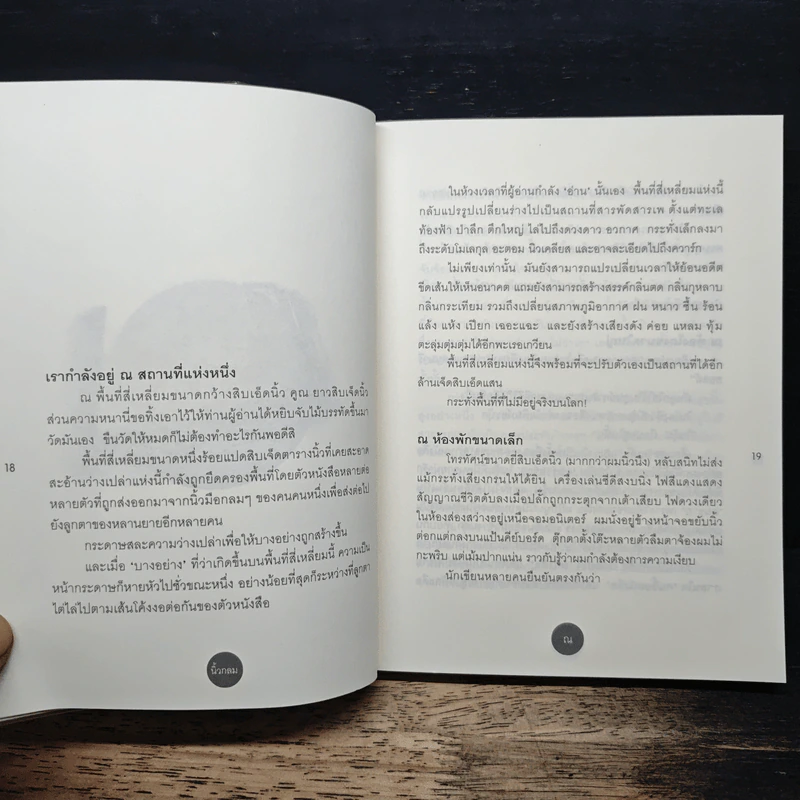 เรากำลังอยู่ ณ สถานที่แห่งหนึ่ง
ณ พื้นที่สี่เหลี่ยมขนาดกว้างสิบเอ็ดนิ้ว คูณ ยาวสิบเจ็ดนิ้ว
ส่วนความหนานี่ขอทิ้งเอาไว้ให้ท่านผู้อ่านได้หยิบจับไม้บรรทัดขึ้นมา
วัดมันเอง ขืนวัดให้หมดก็ไม่ต้องทำอะไรกันพอดีสิ
พื้นที่สี่เหลี่ยมขนาดหนึ่งร้อยแปดสิบเจ็ดตารางนิ้วที่เคยสะอาด
สะอ้านว่างเปล่าแห่งนี้กำลังถูกยึดครองพื้นที่โดยตัวหนังสือหลายต่อ
หลายตัวที่ถูกส่งออกมาจากนิ้วมือกลมๆ ของคนคนหนึ่งเพื่อส่งต่อไป
ยังลูกตาของหลานยายอีกหลายคน
กระดาษสละความว่างเปล่าเพื่อให้บางอย่างถูกสร้างขึ้น
และเมื่อ ‘บางอย่าง’ ที่ว่าเกิดขึ้นบนพื้นที่สี่เหลี่ยมนี้ ความเป็น
หน้ากระดาษก็หายหัวไปชั่วขณะหนึ่ง อย่างน้อยที่สุดก็ระหว่างที่ลูกตา
ไต่ไล่ไปตามเส้นโค้งงอต่อกันของตัวหนังสือ
18
นิ้วกลม
ในห้วงเวลาที่ผู้อ่านกำลัง ‘อ่าน’ นั้นเอง พื้นที่สี่เหลี่ยมแห่งนี้
กลับแปรรูปเปลี่ยนร่างไปเป็นสถานที่สารพัดสารเพ ตั้งแต่ทะเล
ท้องฟ้า ป่าลึก ตึกใหญ่ ไล่ไปถึงดวงดาว อวกาศ กระทั่งเล็กลงมา
ถึงระดับโมเลกุล อะตอม นิวเคลียส และอาจละเอียดไปถึงควาร์ก
ไม่เพียงเท่านั้น มันยังสามารถแปรเปลี่ยนเวลาให้ย้อนอดีต
ขีดเส้นให้เห็นอนาคต แถมยังสามารถสร้างสรรค์กลิ่นตด กลิ่นกุหลาบ
กลิ่นกระเทียม รวมถึงเปลี่ยนสภาพภูมิอากาศ ฝน หนาว ชื้น ร้อน
แล้ง แห้ง เปียก เฉอะแฉะ และยังสร้างเสียงดัง ค่อย แหลม ทุ้ม
ตะลุ่มตุ่มตุ่มได้อีกพะเรอเกวียน
พื้นที่สี่เหลี่ยมแห่งนี้จึงพร้อมที่จะปรับตัวเองเป็นสถานที่ได้อีก
ล้านเจ็ดสิบเอ็ดแสน
กระทั่งพื้นที่ที่ไม่มีอยู่จริงบนโลก!
ณ ห้องพักขนาดเล็ก
โทรทัศน์ขนาดยี่สิบเอ็ดนิ้ว (มากกว่าผมนิ้วนึง) หลับสนิทไม่ส่ง
แม้กระทั่งเสียงกรนให้ได้ยิน เครื่องเล่นซีดีสงบนิ่ง ไฟสีแดงแสดง
สัญญาณชีวิตดับลงเมื่อปลั๊กถูกกระตุกจากเต้าเสียบ ไฟดวงเดียว
ในห้องส่องสว่างอยู่เหนือจอมอนิเตอร์ ผมนั่งอยู่ข้างหน้าจอขยับนิ้ว
ต่อกแต่กลงบนแป้นคีย์บอร์ด ตุ๊กตาตั้งโต๊ะหลายตัวลืมตาจ้องผมไม่
กะพริบ แต่เม้มปากแน่น ราวกับรู้ว่าผมกำลังต้องการความเงียบ
นักเขียนหลายคนยืนยันตรงกันว่า
19
ณ